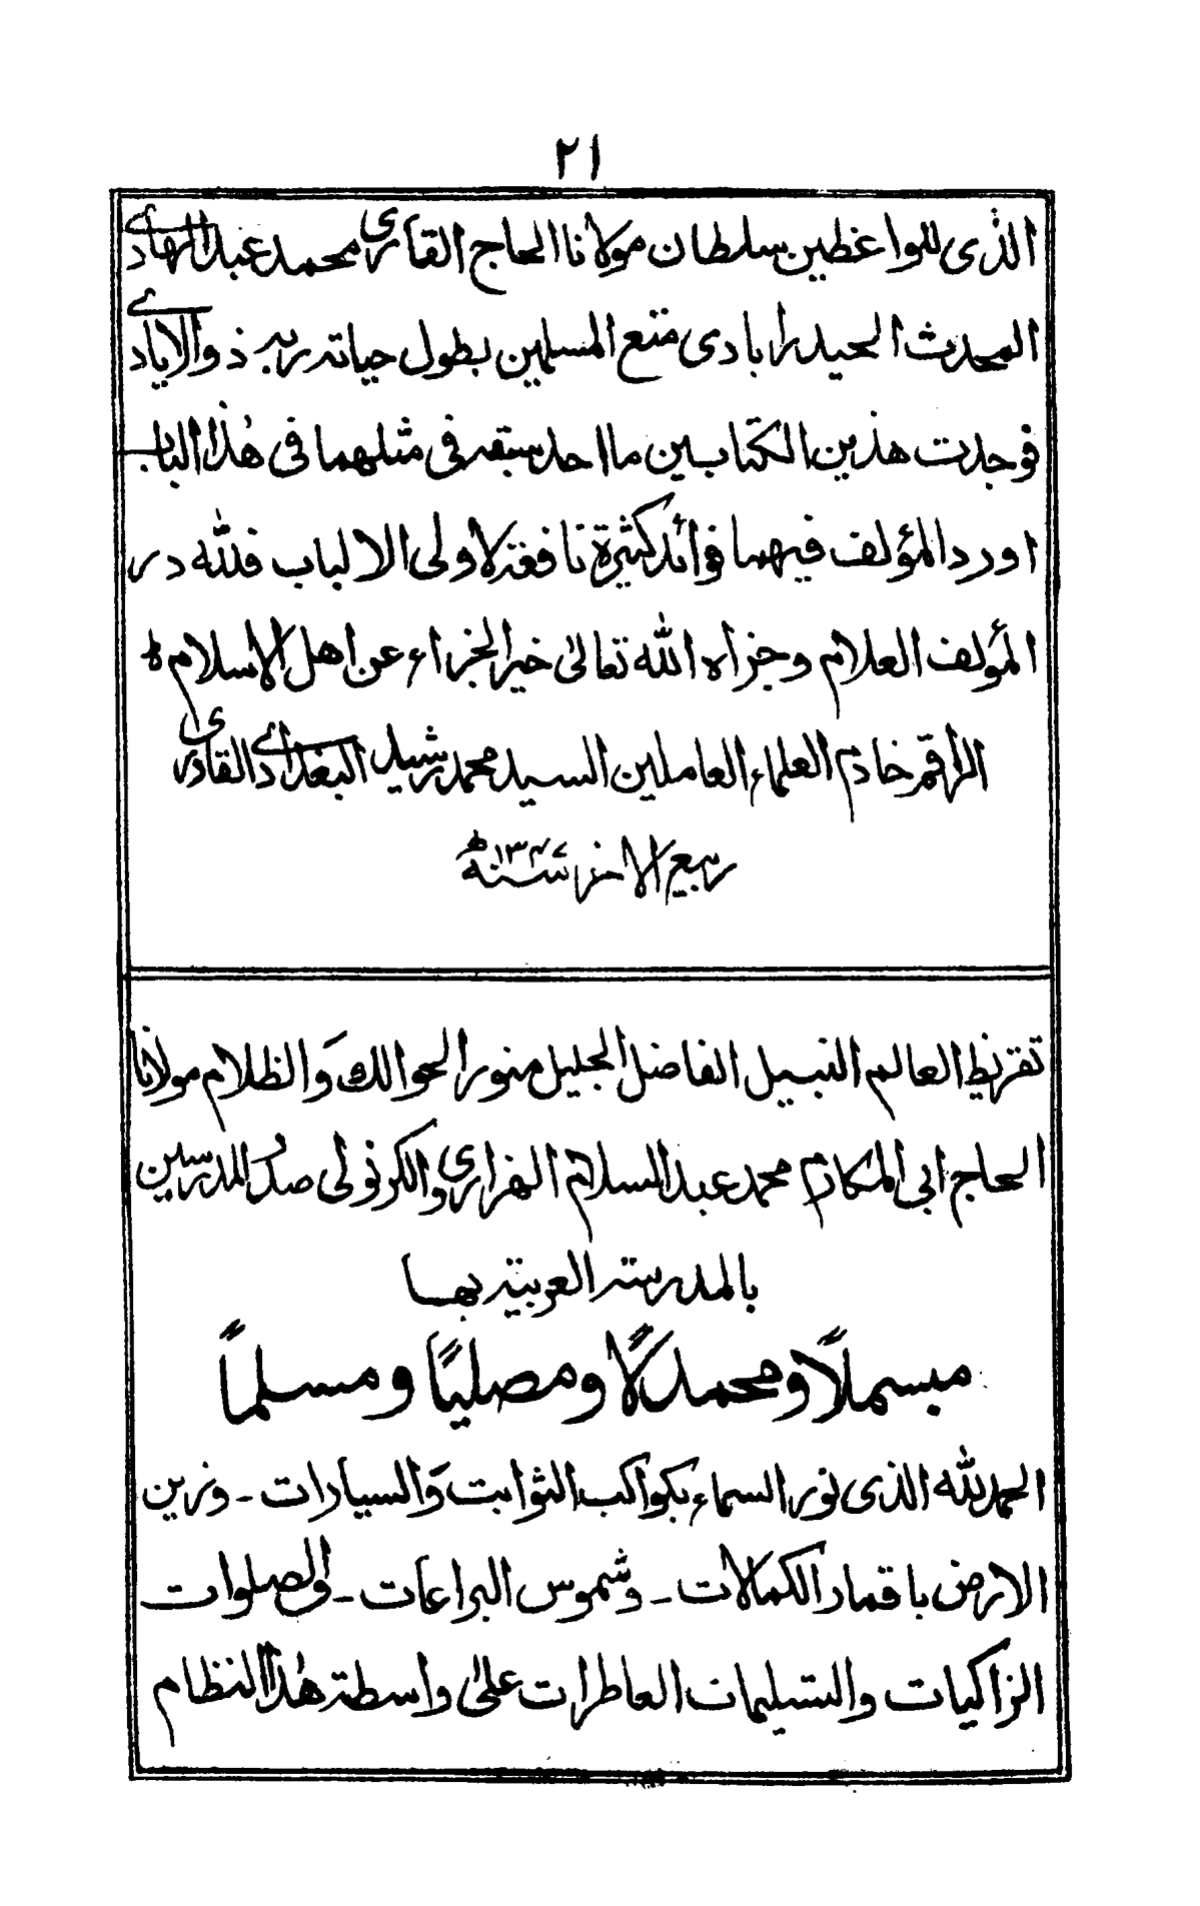 ٢١
الذى للواعظين سلطان مولانا الحاج القارى محمد عبد الهادى
المحدث الحيدرابادى متع المسلمين بطول حياته ربه ذو الايادى
فوجدت هذين الكتابين ما احد سبقه فى مثلهما فى هذا الباب
اورد المؤلف فيهما فوائد كثيرة نافعة لاولى الالباب فلله در
المؤلف العلام وجزاه الله تعالىٰ خير الجزاء عن اهل الاسلام ۵
الراقم خادم العلماء العاملين السيد محمد رشيد البغدادى القادرى
ربيع الاخر سنة ١٣٤٧ ه
تقريظ العالم النبيل الفاضل الجليل منور الحوالك والظلام مولانا
الحاج ابى المكارم محمد عبد السلام الهزاروى والكرنولى صدر المدرسين
بالمدرسة العربية بها
مبسملاً ومحمدلاً ومصلياً ومسلماً
الحمد لله الذى نور السماء بكواكب الثوابت والسيارات ۔ وزين
الارض باقمار الكمالات ۔ وشموس البراعات ۔ والصلوات
الزاكيات والتسليمات العاطرات علىٰ واسطة هٰذا النظام